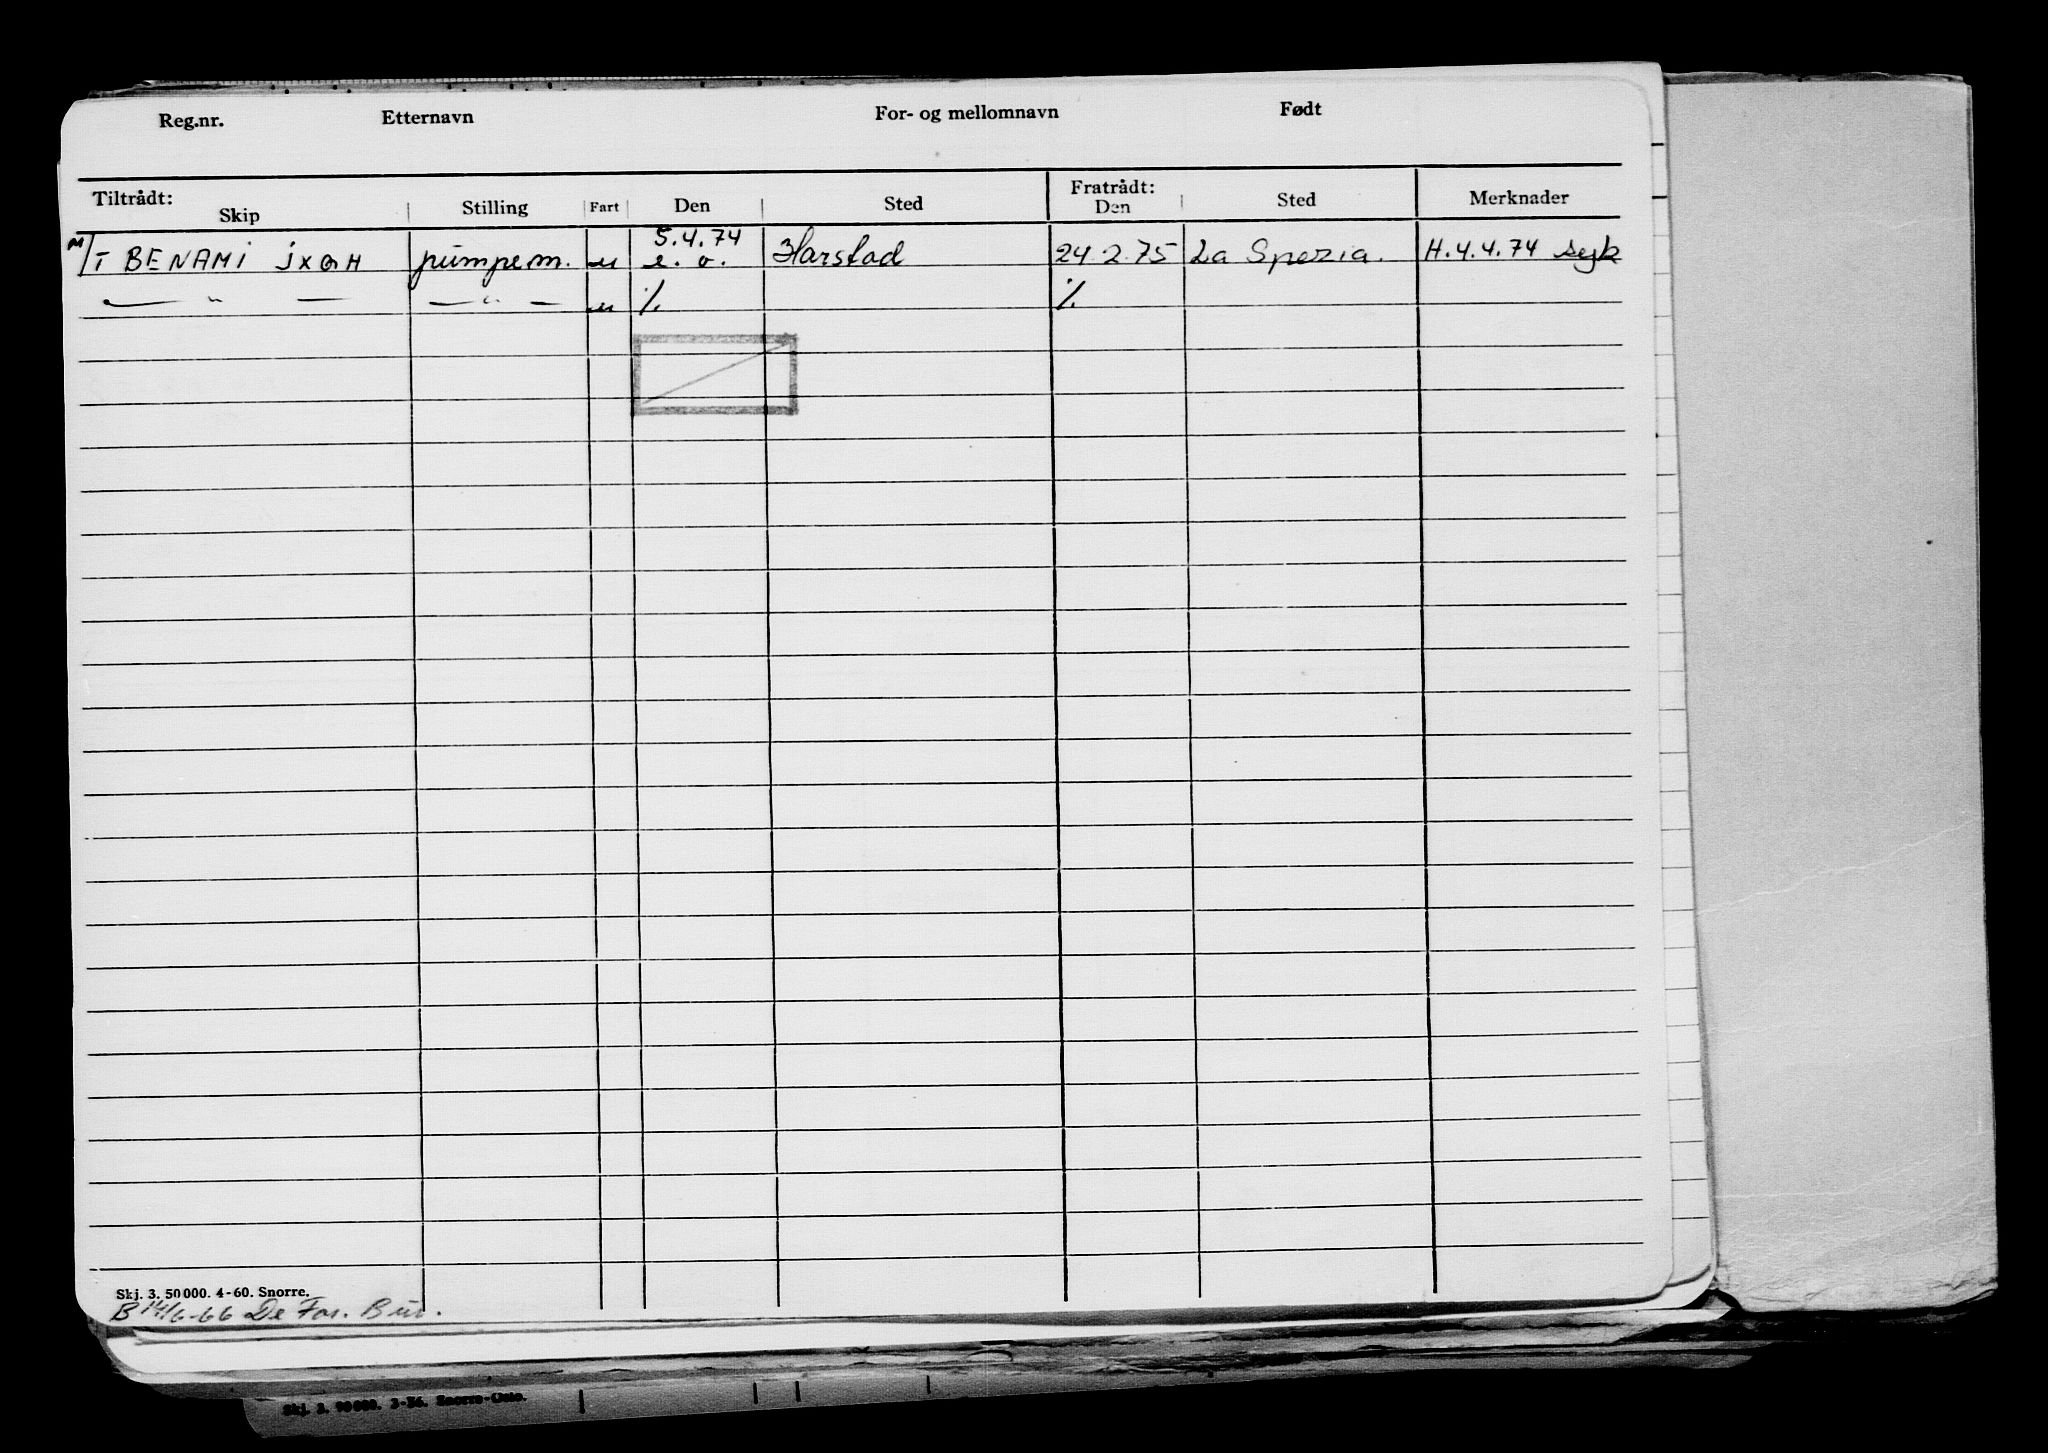 Reg.nr. Etternavn For- og mellomnavn Født
Tiltrådt: Fratrådt:
Skip Stilling Fart Den Sted Den Sted Merknader
5.4.74
M/T BENAMI JXQH pumpem. u e. o. Harstad 24.2.75 La Spezia. H.4.4.74
— " — — " — u ·/. ·/.
Skj. 3. 50 000. 4-60. Snorre.
B 14/6-66 De For. Bur.
Skj. 3. 90 000. 3-56. Snorre-Oslo.